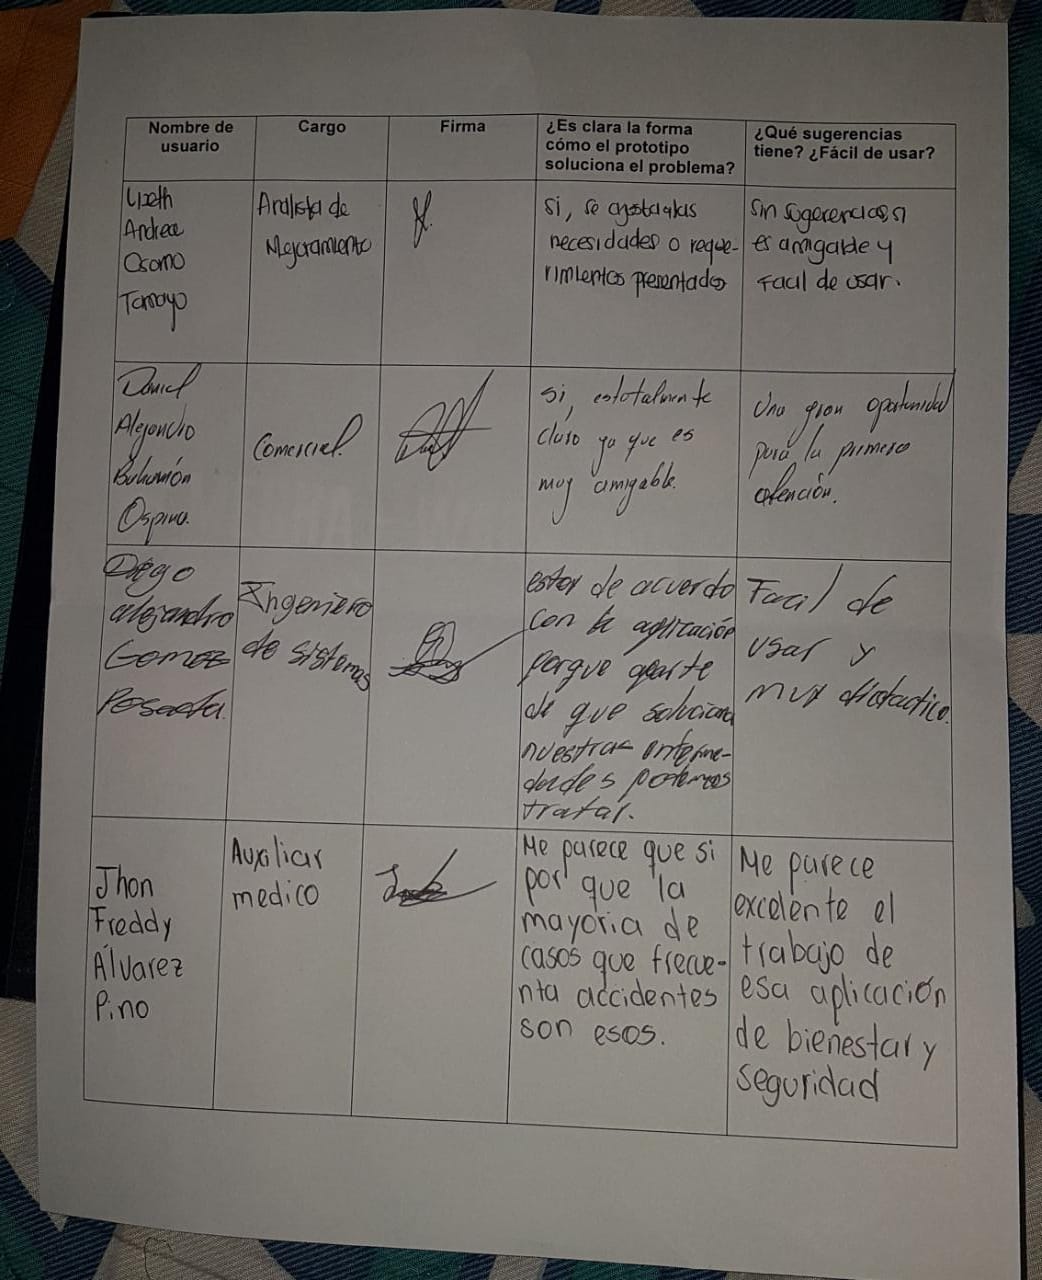 Nombre de
usuario
Cargo
Firma
¿Es clara la forma
cómo el prototipo
soluciona el problema?
¿Qué sugerencias
tiene? ¿Fácil de usar?
Lizeth
Andrea
Osorno
Tamayo
Analista de
Mejoramiento
si, se ajusta a las
necesidades o reque-
rimientos presentados
Sin sugerencias, si
es amigable y
Facil de usar.
Daniel
Alejandro
Ospina.
Comercial.
si, es totalmente
claro ya que es
muy amigable.
Una gran oportunidad
para la primera
atención.
Diego
alejandro
Gomez
Posada.
Ingeniero
de sistemas
estoy de acuerdo
con la aplicación
porque aparte
de que soluciona
nuestras enferme-
dades podemos
tratar.
Facil de
usar y
muy didactico.
Jhon
Freddy
Álvarez
Pino
Auxiliar
medico
Me parece que si
por que la
mayoria de
casos que frecue-
nta accidentes
son esos.
Me parece
excelente el
trabajo de
esa aplicación
de bienestar y
seguridad